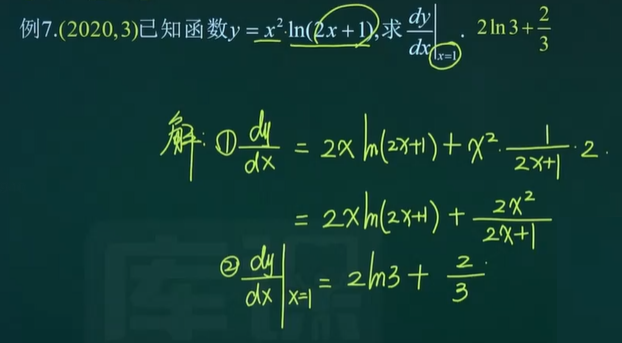 例7.(2020,3)已知函数y = x²·ln(2x+1),求dy/dx|x=1. 2ln3+2/3
解: ① dy/dx = 2x ln(2x+1) + x²·1/(2x+1)·2.
= 2x ln(2x+1) + 2x²/(2x+1)
② dy/dx|x=1 = 2ln3 + 2/3.
库课